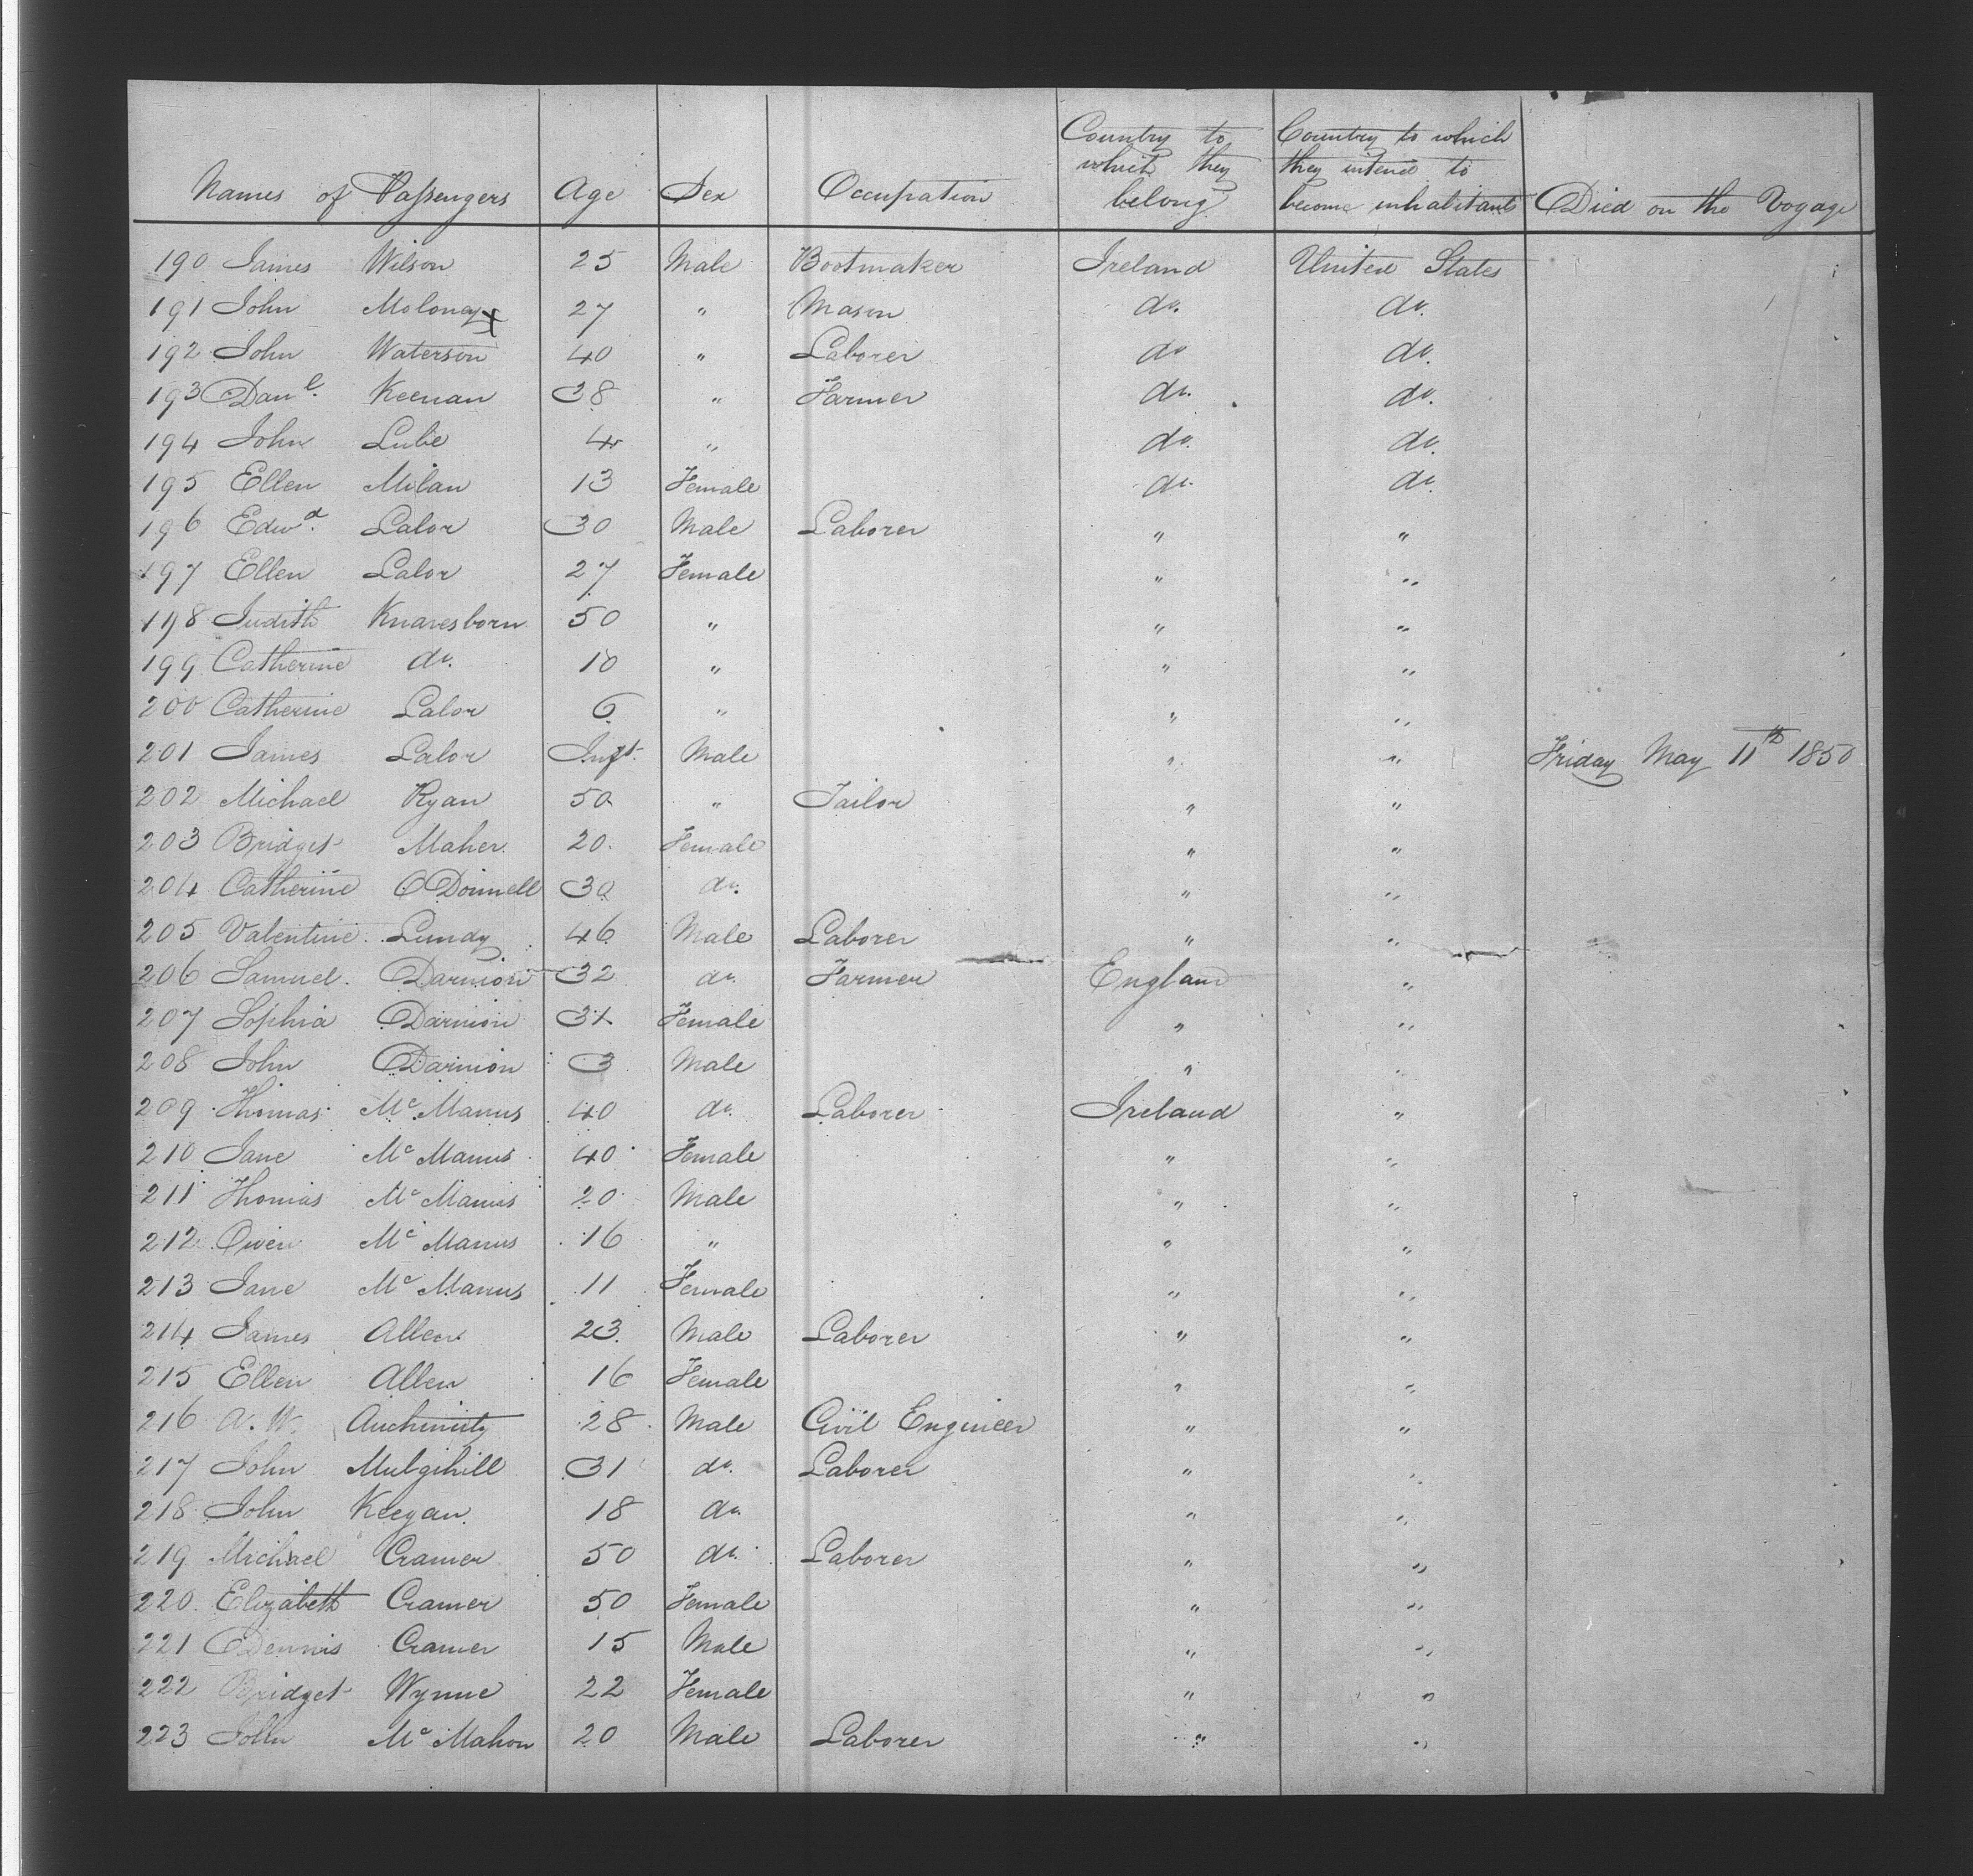 Names of Passengers Age Sex Occupation Country to which they belong Country to which they intend to become inhabitants Died on the Voyage
190 James Wilson 25 Male Bootmaker Ireland United States
191 John Moloney x 27 " Mason do. do.
192 John Waterson 40 " Laborer do do.
193 Danl. Keenan 38 " Farmer do. do.
194 John Lube 4 " do. do.
195 Ellen Milan 13 Female do. do.
196 Edwd. Lalor 30 Male Laborer " "
197 Ellen Lalor 27 Female " "
198 Judith Knaresborn 50 " " "
199 Catherine do. 10 " " "
200 Catherine Lalor 6 " " "
201 James Lalor Inft. Male " " Friday May 11th 1850
202 Michael Ryan 50 " Tailor " "
203 Bridget Maher 20 Female " "
204 Catherine ODonnell 30 do. " "
205 Valentine Lundy 46 Male Laborer " "
206 Samuel Darnion 32 do. Farmer England "
207 Sophia Darnion 31 Female " "
208 John Darnion 3 Male " "
209 Thomas McManus 40 do. Laborer Ireland "
210 Jane McManus 40 Female " "
211 Thomas McManus 20 Male " "
212 Owen McManus 16 " " "
213 Jane McManus 11 Female " "
214 James Allen 23 Male Laborer " "
215 Ellen Allen 16 Female " "
216 A. W. Auchmuty 28 Male Civil Engineer " "
217 John Mulgihill 31 do. Laborer " "
218 John Keegan 18 do. " "
219 Michael Cramer 50 do. Laborer " "
220 Elizabeth Cramer 50 Female " "
221 Dennis Cramer 15 Male " "
222 Bridget Wynne 22 Female " "
223 John McMahon 20 Male Laborer " "